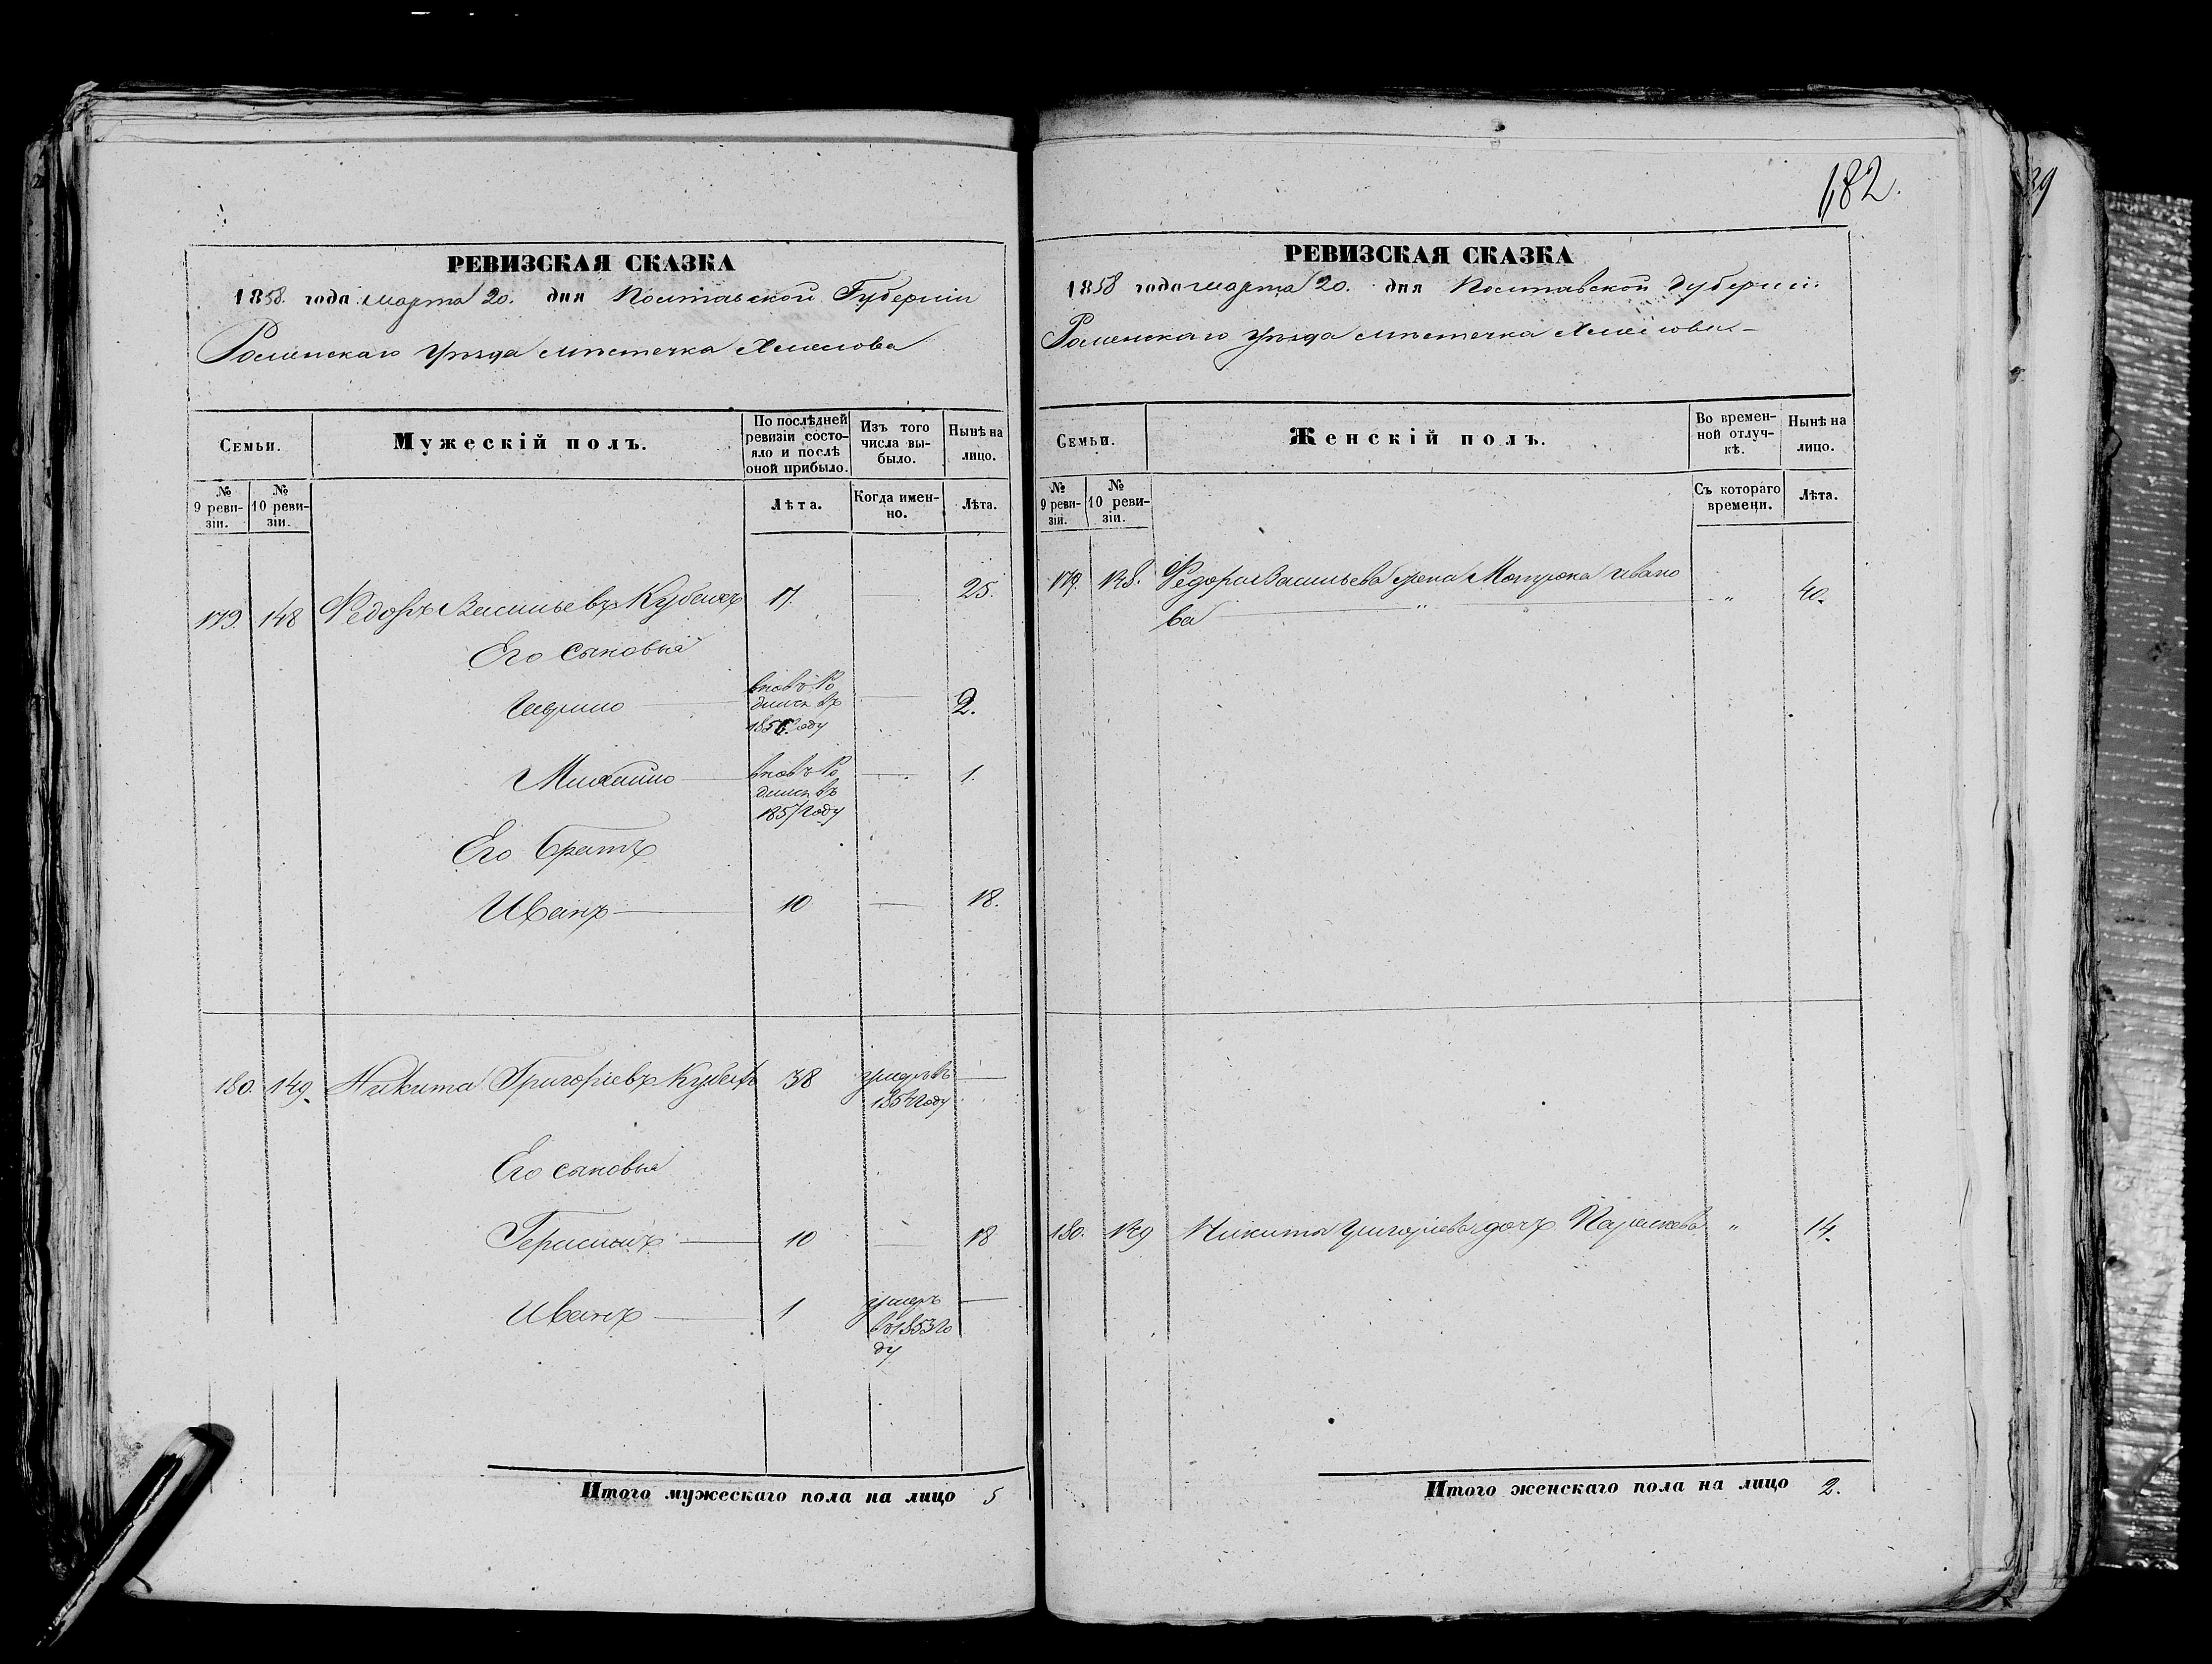 РЕВИЗСКАЯ СКАЗКА
1858. года марта 20. дня Полтавской Губерніи
Роменскаго Уѣзда мѣстечка Хмелова
Семьи.
Мужескій полъ.
По послѣдней ревизіи состояло и послѣ оной прибыло.
Изъ того числа выбыло.
Нынѣ на лицо.
№ 9 ревизіи.
№ 10 ревизіи.
Лѣта.
Когда именно.
Лѣта.
179. 148 Федоръ Васильевъ 17. 25.
Его сыновья
Гаврило вновь родился въ 1856 году 2.
Михайло вновь родился въ 1857 году 1.
Его братъ
Иванъ 10 18.
180. 149. Никита Григоріевъ 38 умеръ въ году
Его сыновья
Герасимъ 10 18
Иванъ 1 умеръ въ 1853 году
Итого мужескаго пола на лицо 5
182.
РЕВИЗСКАЯ СКАЗКА
1858 года марта 20. дня Полтавской Губерніи
Роменскаго Уѣзда мѣстечка Хмелова
Семьи.
Женскій полъ.
Во временной отлучкѣ.
Нынѣ на лицо.
№ 9 ревизіи.
№ 10 ревизіи.
Съ котораго времени.
Лѣта.
179. 148. Федора Васильева жена Мотрона Ивано
ва " " 40.
180. 149 Никиты Григорьева дочь Параскева " 14.
Итого женскаго пола на лицо 2.
39